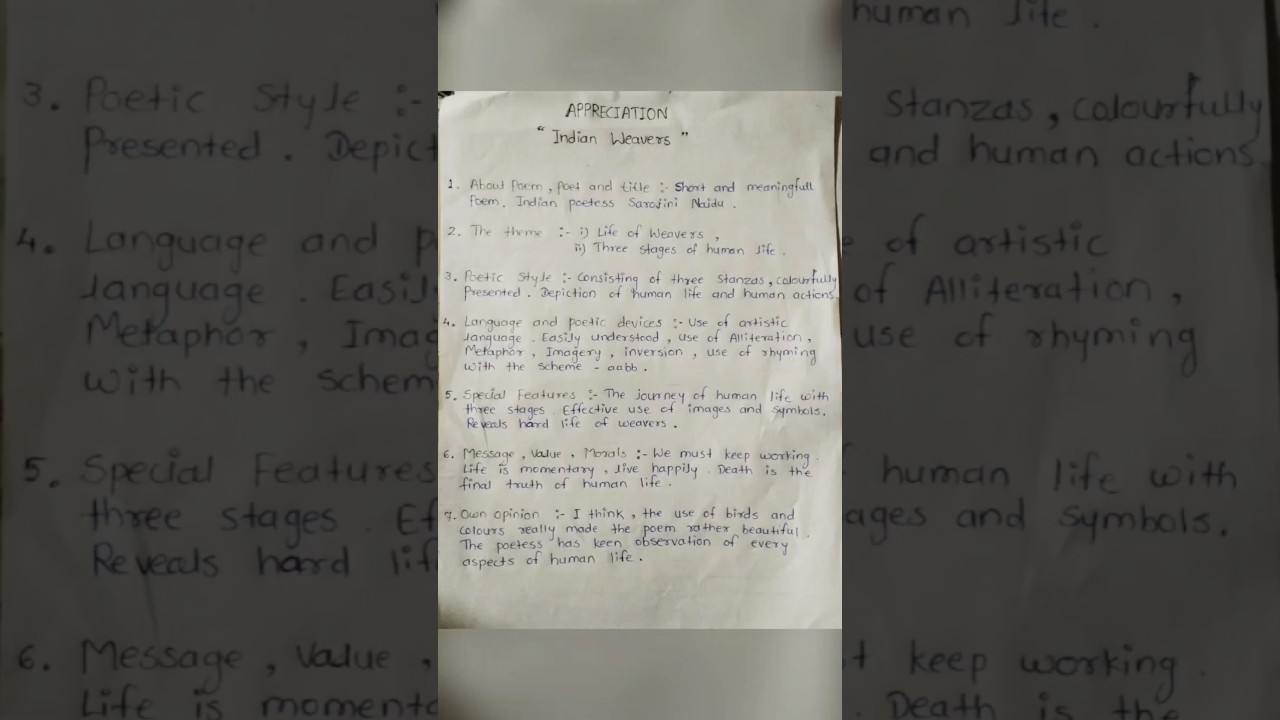 APPRECIATION
"Indian Weavers"
1. About Poem, Poet and title :- Short and meaningfull
Poem. Indian poetess Sarojini Naidu.
2. The theme :- i) Life of Weavers,
ii) Three stages of human life.
3. Poetic Style :- Consisting of three Stanzas, colourfully
Presented. Depiction of human life and human actions.
4. Language and poetic devices :- Use of artistic
language. Easily understood, use of Alliteration,
Metaphor, Imagery, inversion, use of rhyming
with the scheme - aabb.
5. Special Features :- The journey of human life with
three stages. Effective use of images and symbols.
Reveals hard life of weavers.
6. Message, Value, Morals :- We must keep working.
Life is momentary, live happily. Death is the
final truth of human life.
7. Own opinion :- I think, the use of birds and
colours really made the poem rather beautiful.
The poetess has keen observation of every
aspects of human life.